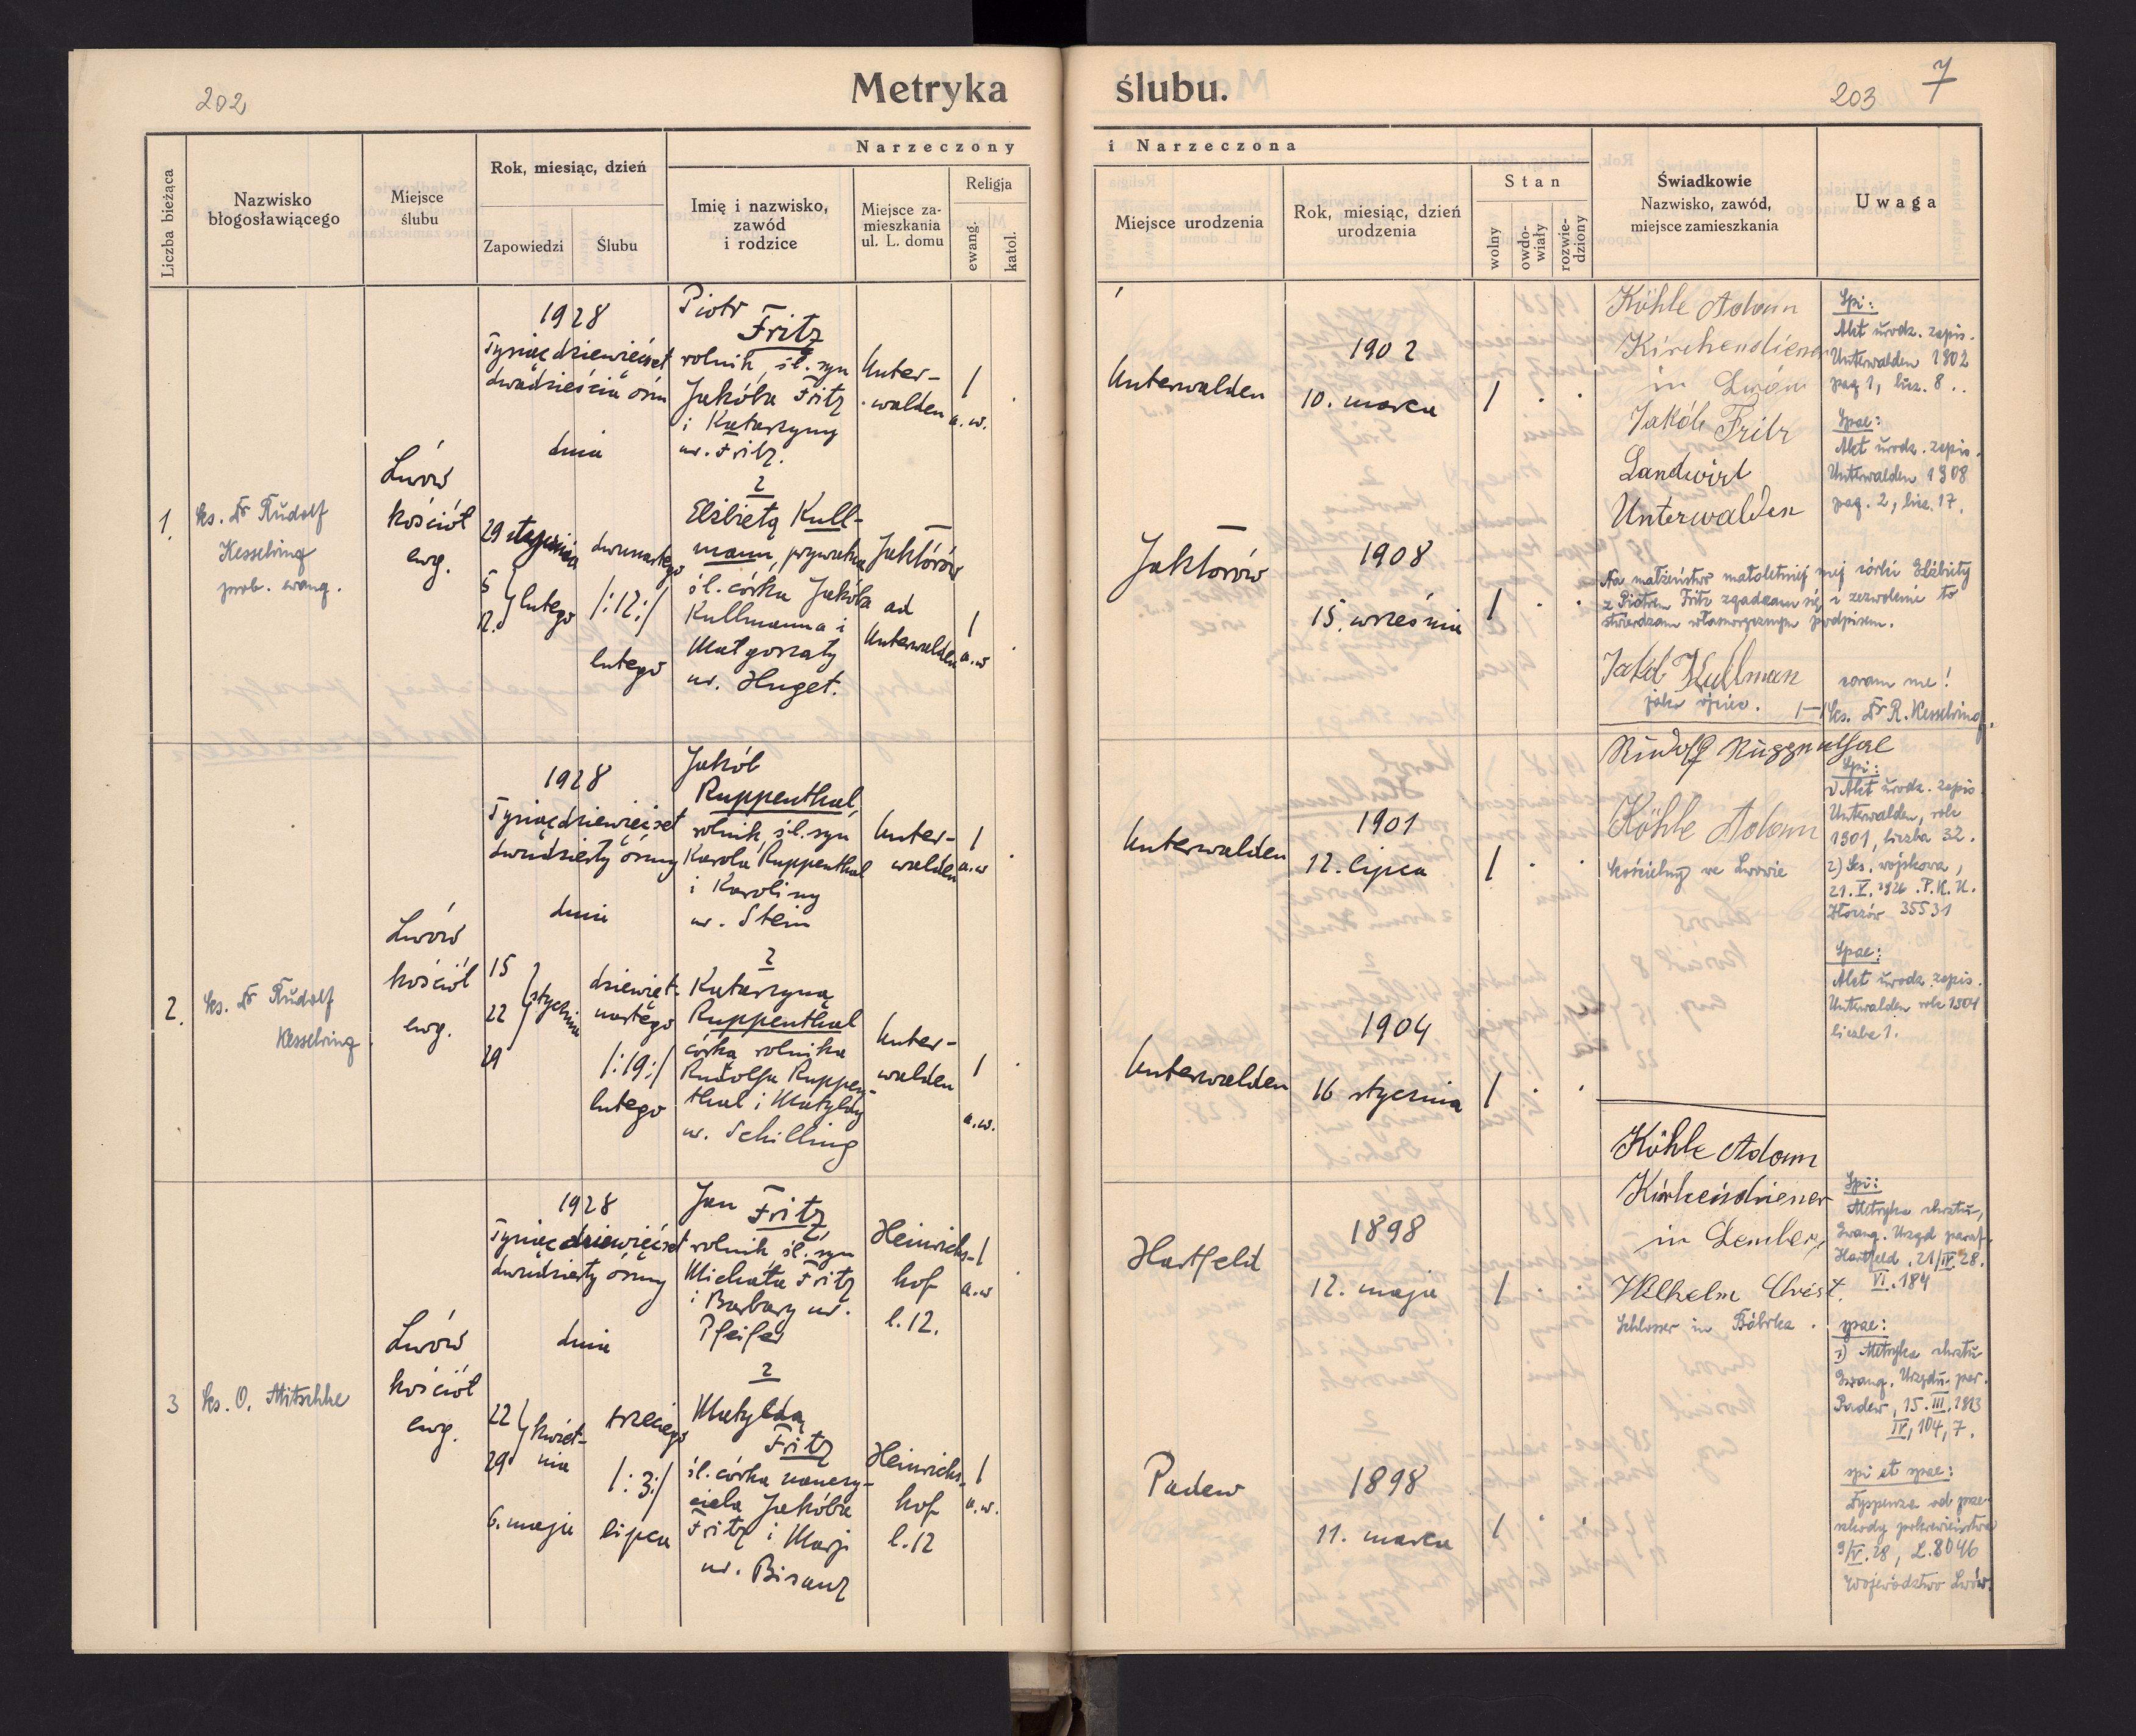 202
Metryka ślubu.
203
7
Liczba bieżąca
Nazwisko
błogosławiącego
Miejsce
ślubu
Rok, miesiąc, dzień
Zapowiedzi
Ślubu
Narzeczony
Imię i nazwisko,
zawód
i rodzice
Miejsce za-
mieszkania
ul. L. domu
Religja
ewang.
katol.
i Narzeczona
Miejsce urodzenia
Rok, miesiąc, dzień
urodzenia
Stan
wolny
owdo-
wiały
rozwie-
dziony
Świadkowie
Nazwisko, zawód,
miejsce zamieszkania
Uwaga
1.
ks. Dr Rudolf
Kesselring
prob. ewang.
Lwów
kościół
ewg.
1928
Tysiąc dziewięćset
dwadzieścia ósm
dnia
29 stycznia
5
12. } lutego
dwunastego
/:12:/
lutego
Piotr
Fritz
rolnik, śl. syn
Jakóba Fritz
i Katarzyny
ur. Fritz.
z
Elżbietą Kull-
mann, prywatna
śl. córka Jakóba
Kullmanna i
Małgorzaty
ur. Huget.
Unter-
walden
Jaktorów
ad
Unterwalden
1
a.w.
1
a.w
Unterwalden
1902
10. marca
1 . .
Jaktorów
1908
15. września
1 . .
Köhle Adam
Kirchendiener
in Lwów
Jakób Fritz
Landwirt
Unterwalden
Na małżeństwo małoletniej mej córki Elżbiety
z Piotrem Fritz zgadzam się i zezwolenie to
stwierdzam własnoręcznym podpisem.
Jakob Kullman
jako ojciec.
coram me!
ks. Dr R. Kesselring.
Spi:
Akt urodz. zapis.
Unterwalden 1902
pag 1, licz. 8..
Spae:
Akt urodz. zapis.
Unterwalden 1908
pag. 2, licz. 17.
2.
ks. Dr Rudolf
Kesselring
Lwów
kościół
ewg.
1928
Tysiąc dziewięćset
dwudziesty ósmy
dnia
15
22 } stycznia
29
dziewięt-
nastego
/:19:/
lutego
Jakób
Ruppenthal,
rolnik, śl. syn
Karola Ruppenthal
i Karoliny
ur. Stein
z
Katarzyną
Ruppenthal
córka rolnika
Rudolfa Ruppen-
thal i Matyldy
ur. Schilling
Unter-
walden
Unter-
walden
1
a.w
1
a.w.
Unterwalden
1901
12. lipca
1 . .
Unterwalden
1904
16 stycznia
1 . .
Rudolf Ruppenthal
Köhle Adam
kościelny we Lwowie
Spi:
1) Akt urodz. zapis.
Unterwalden, rok
1901, liczba 32.
2) Ks. wojskowa,
21.V.1926. P.K.U.
Złoczów 35531
Spae:
Akt urodz. zapis.
Unterwalden rok 1904
liczba 1.
3
ks. O. Mitschke
Lwów
kościół
ewg.
1928
Tysiąc dziewięćset
dwudziesty ósmy
dnia
22 } kwiet-
29 nia
6. maja
trzeciego
/:3:/
lipca
Jan Fritz,
rolnik, śl. syn
Michała Fritz
i Barbary ur.
Pfeifer
z
Matyldą
Fritz
śl. córka nauczy-
ciela Jakóba
Fritz i Marji
ur. Bisanz
Heinrichs-
hof
l.12.
Heinrichs-
hof
l.12
1
a.w
1
a.w.
Hartfeld
1898
12. maja
1 . .
Padew
1898
11. marca
1 . .
Köhle Adam
Kirchendiener
in Lemberg
Wilhelm Christ.
Schlosser in Bóbrka.
Spi:
Metryka chrztu,
Ewang. Urząd paraf.
Hartfeld, 21/IV.28.
VI.184
spae:
1) Metryka chrztu
Ewang. Urzędu par.
Padew, 15.III.1913
IV, 104, 7.
spi et spae:
Dyspenza od prze-
szkody pokrewieństwa
9/V.28, L.8046
Województwo Lwów.